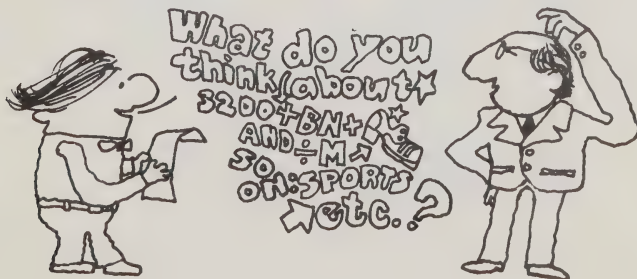 What do you
think (about
3200+BN+
AND÷M
SO
ON:SPORTS
etc..?